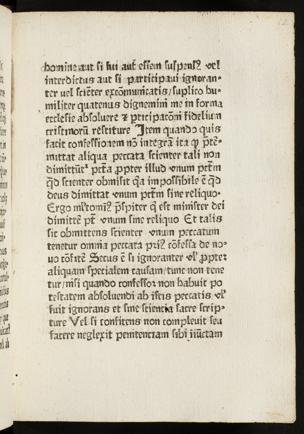 homine aut si sui aut̄ essem suspensꝰ vel
interdictus aut si participaui ignoran⸗
ter uel sciēter excōmunicatis/suplico hu⸗
militer quatenus dignemini me in forma
ecclesie absoluere ⁊ p̄ticipatōni fidelium
restituere Item quando quis
facit confessionem nō integrā ita ꝙ p̄tē⸗
mittat aliqua peccata scienter tali non
dimittūt᷑ pctā ꝓpter illud vnum pctm̄
qđ scienter obmisit q̄a impossibile ē q̄d
deus dimittat vnum pctm̄ sine reliquo
Ergo est minister dei
dimitte vnum sine reliquo Et talis
sic obmittens scienter vnum peccatum
tenetur omnia peccata priꝰ cōfessa de no⸗
uo Secus ē si ignoranter vl̓ ꝓpter
aliquam specialem causam/tunc non tene
tur/nisi quando confessor non habuit po
testatem absoluendi ab peccatis vl̓
fuit ignorans et sine scientia sacre scrip⸗
ture Vel si confitens non compleuit seu
facere neglexit penitenciam sibi iniūctam